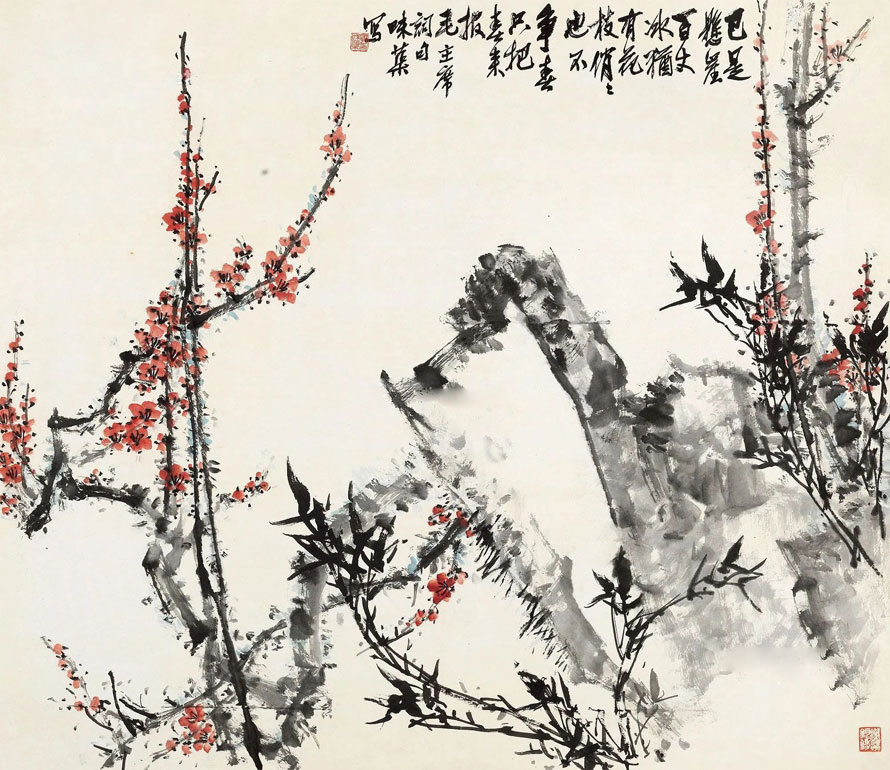 已是
懸崖
百丈
冰猶
有花
枝俏〻
也不
争春
只把
春来
报
毛主席
詞句
味蕖
写